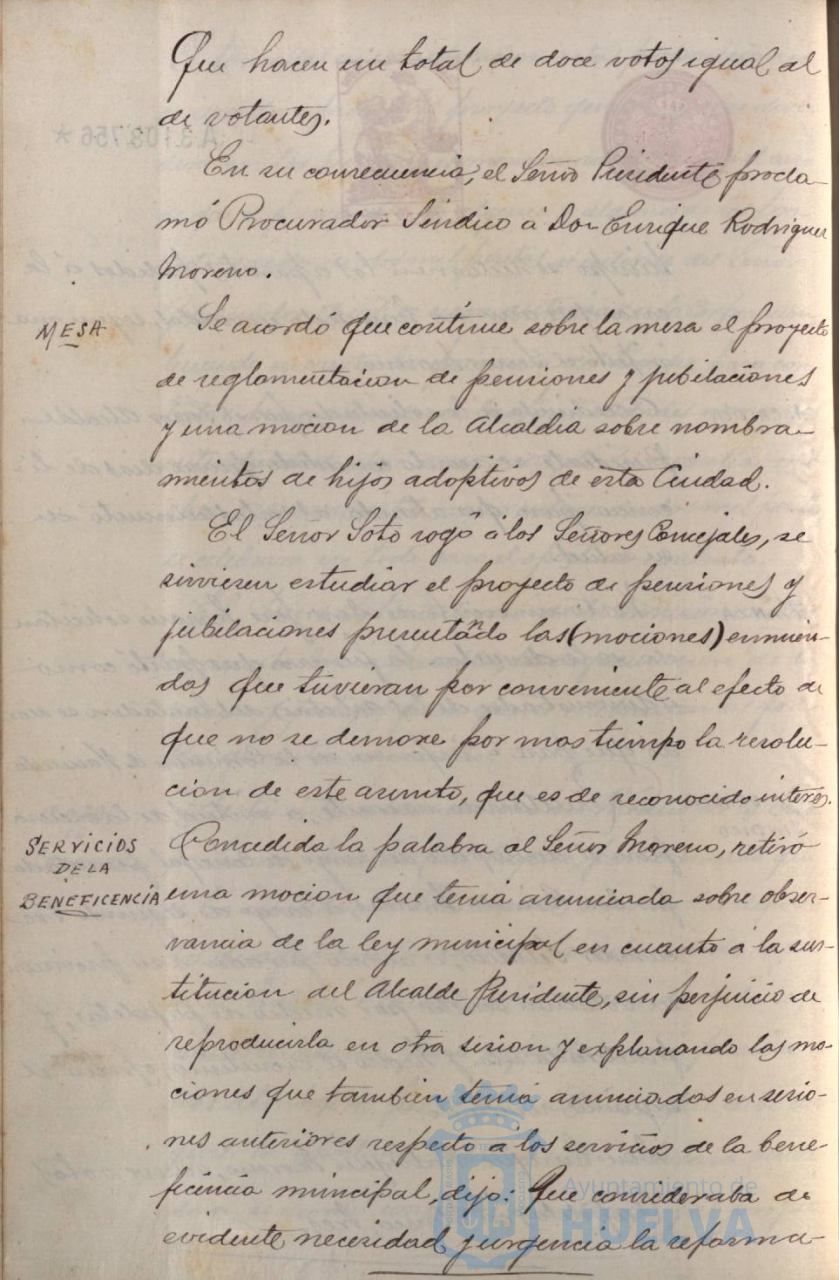 Que hacen un total de doce votos igual al
de votantes.
En su consecuencia, el Señor Presidente procla-
mó Procurador Síndico á Don Enrique Rodriguez
Moreno.
MESA
Se acordó que continue sobre la mesa el proyecto
de reglamentacion de pensiones y jubilaciones
y una mocion de la Alcaldia sobre nombra-
mientos de hijos adoptivos de esta Ciudad.
El Señor Soto rogó á los Señores Concejales, se
sirviesen estudiar el proyecto de pensiones y
jubilaciones presentando las (mociones) enmien-
das que tuvieran por conveniente al efecto de
que no se demore por mas tiempo la resolu-
cion de este asunto, que es de reconocido interés.
SERVICIOS
DE LA
BENEFICENCIA
Concedida la palabra al Señor Moreno, retiró
una mocion que tenia anunciada sobre obser-
vancia de la ley municipal en cuanto á la sus-
titucion del Alcalde Presidente, sin perjuicio de
reproducirla en otra sesion y explanando las mo-
ciones que tambien tenia anunciadas en sesio-
nes anteriores respecto á los servicios de la bene-
ficencia municipal, dijo: Que consideraba de
evidente necesidad y urgencia la reforma
Ayuntamiento de
HUELVA